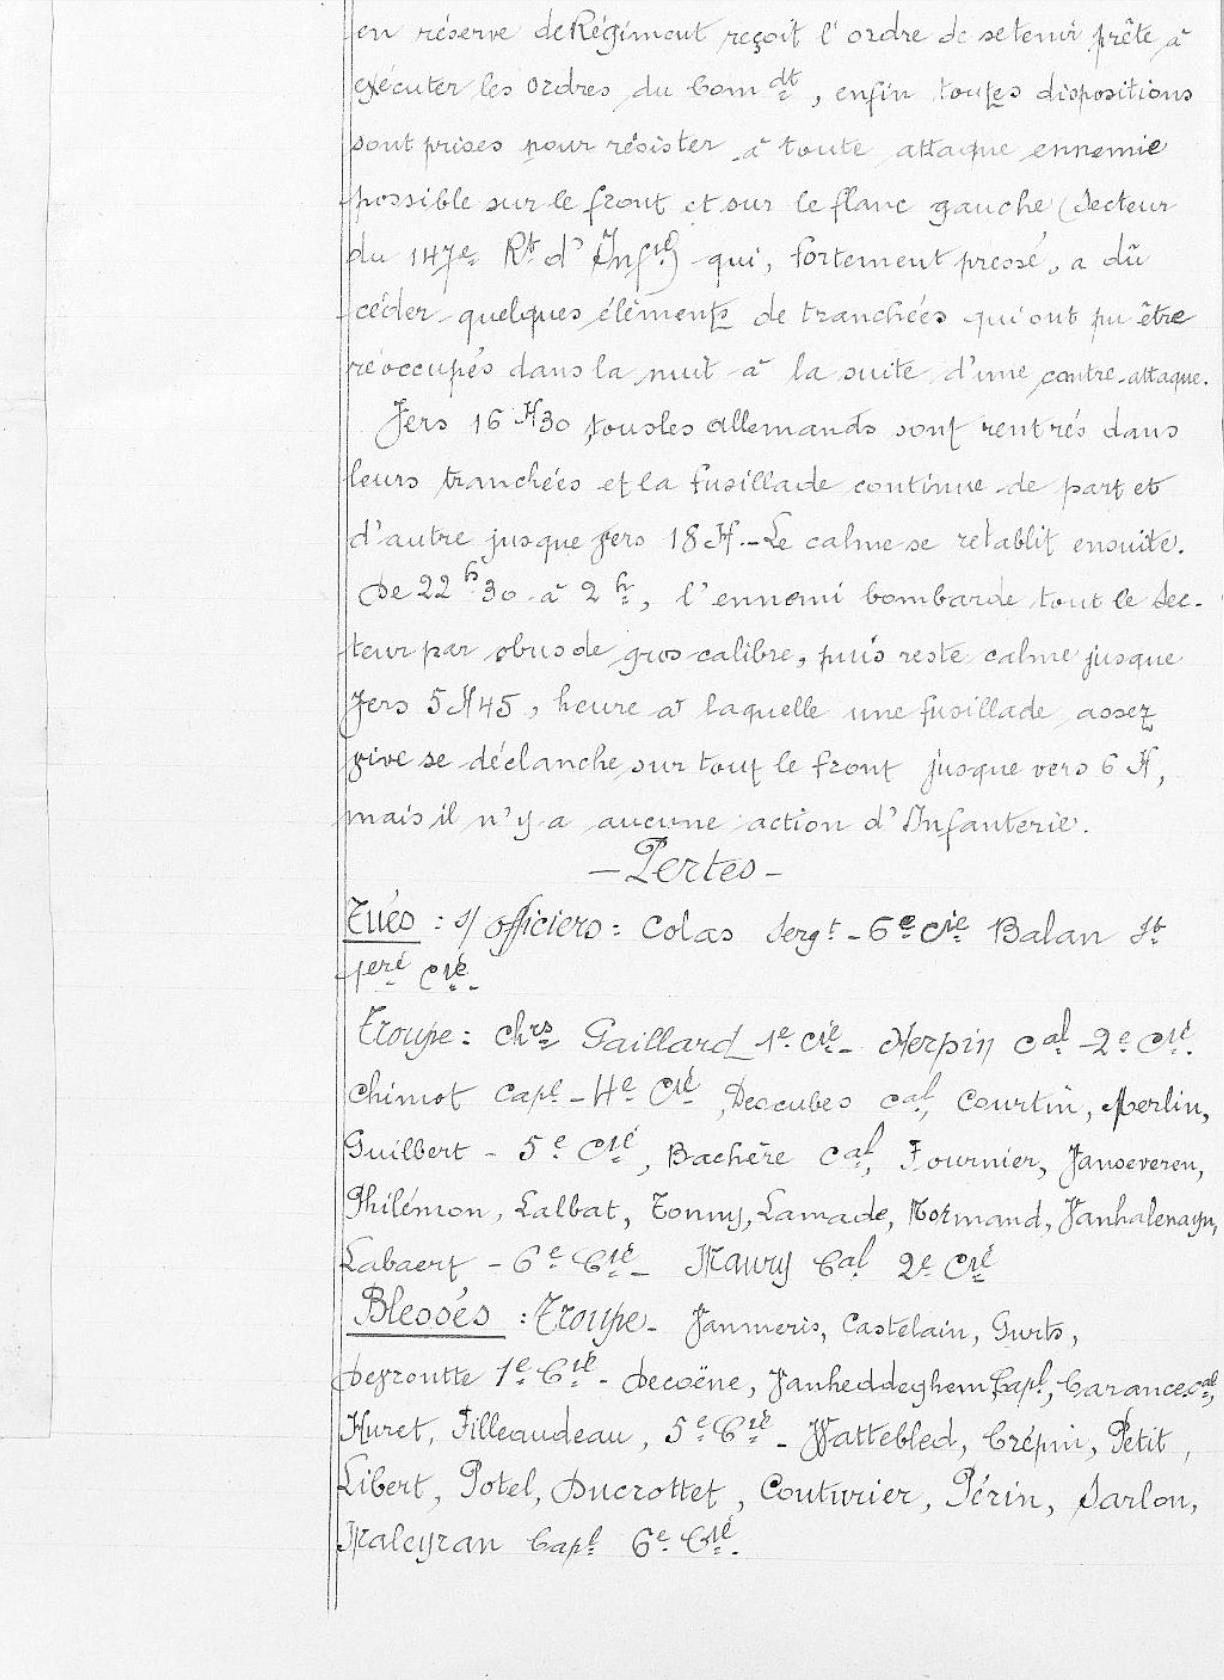 en réserve de Régiment reçoit l'ordre de se tenir prête à
exécuter les ordres du Com dt, enfin toutes dispositions
sont prises pour résister à toute attaque ennemie
possible sur le front et sur le flanc gauche (Secteur
du 147e Rt d'Infie) qui, fortement pressé, a dû
céder quelques éléments de tranchées qui ont pu être
réoccupés dans la nuit à la suite d'une contre-attaque.
Vers 16 H30 tous les allemands sont rentrés dans
leurs tranchées et la fusillade continue de part et
d'autre jusque vers 18 H. - Le calme se rétablit ensuite.
De 22 h 30 à 2 h, l'ennemi bombarde tout le Sec-
teur par obus de gros calibre, puis reste calme jusque
vers 5 H45, heure à laquelle une fusillade assez
vive se déclanche sur tout le front jusque vers 6 H,
mais il n'y a aucune action d'Infanterie.
- Pertes -
Tués : s/ officiers : Colas Sergt - 6e Cie Balan St
1ere Cie
Troupe : Chrs Gaillard 1e Cie - Herpin Cal - 2e Cie
Chimot Capl - 4e Cie, Descubes Cal, Courtin, Merlin,
Guilbert - 5e Cie, Bachère Cal, Fournier, Vanseveren,
Philémon, Lalbat, Tonny, Lamade, Normand, Vanhalenayn,
Labaert - 6e Cie - Maury Cal 2e Cie
Blessés : Troupe - Vanmeris, Castelain, Gurts,
Deyroutte 1e Cie - Decoëne, Vanheddeghem Capl, Carance Cal,
Huret, Filleaudeau, 5e Cie - Wattebled, Crépin, Petit,
Libert, Potel, Ducrottet, Couturier, Périn, Sarlon,
Maleyran Capl 6e Cie.